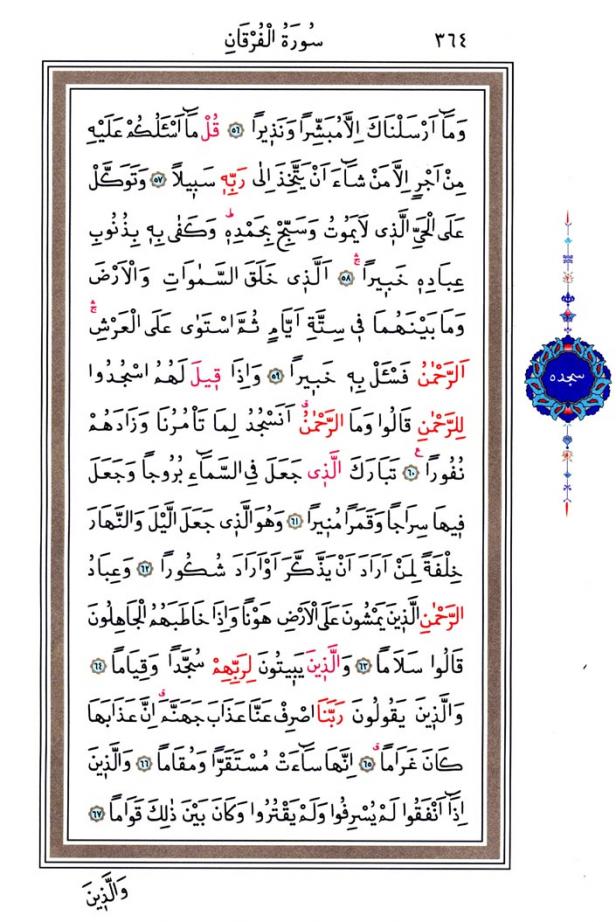 ٣٦٤
سُورَةُ الْفُرْقَانِ
وَمَٓا اَرْسَلْنَاكَ اِلَّا مُبَشِّرًا وَنَذٖيرًا ﴿٥٦﴾ قُلْ مَٓا اَسْـَٔلُكُمْ عَلَيْهِ
مِنْ اَجْرٍ اِلَّا مَنْ شَٓاءَ اَنْ يَتَّخِذَ اِلٰى رَبِّهٖ سَبٖيلًا ﴿٥٧﴾ وَتَوَكَّلْ
عَلَى الْحَيِّ الَّذٖى لَا يَمُوتُ وَسَبِّحْ بِحَمْدِهٖؕ وَكَفٰى بِهٖ بِذُنُوبِ
عِبَادِهٖ خَبٖيرًاۚۛ ﴿٥٨﴾ اَلَّذٖى خَلَقَ السَّمٰوَاتِ وَالْاَرْضَ
وَمَا بَيْنَهُمَا فٖى سِتَّةِ اَيَّامٍ ثُمَّ اسْتَوٰى عَلَى الْعَرْشِۚۛ
اَلرَّحْمٰنُ فَسْـَٔلْ بِهٖ خَبٖيرًا ﴿٥٩﴾ وَاِذَا قٖيلَ لَهُمُ اسْجُدُوا
لِلرَّحْمٰنِ قَالُوا وَمَا الرَّحْمٰنُۗ اَنَسْجُدُ لِمَا تَاْمُرُنَا وَزَادَهُمْ
نُفُورًاࣖ ﴿٦٠﴾ تَبَارَكَ الَّذٖى جَعَلَ فِى السَّمَٓاءِ بُرُوجًا وَجَعَلَ
فٖيهَا سِرَاجًا وَقَمَرًا مُنٖيرًا ﴿٦١﴾ وَهُوَ الَّذٖى جَعَلَ الَّيْلَ وَالنَّهَارَ
خِلْفَةً لِمَنْ اَرَادَ اَنْ يَذَّكَّرَ اَوْ اَرَادَ شُكُورًا ﴿٦٢﴾ وَعِبَادُ
الرَّحْمٰنِ الَّذٖينَ يَمْشُونَ عَلَى الْاَرْضِ هَوْنًا وَاِذَا خَاطَبَهُمُ الْجَاهِلُونَ
قَالُوا سَلَامًا ﴿٦٣﴾ وَالَّذٖينَ يَبٖيتُونَ لِرَبِّهِمْ سُجَّدًا وَقِيَامًا ﴿٦٤﴾
وَالَّذٖينَ يَقُولُونَ رَبَّنَا اصْرِفْ عَنَّا عَذَابَ جَهَنَّمَۗ اِنَّ عَذَابَهَا
كَانَ غَرَامًاۗ ﴿٦٥﴾ اِنَّهَا سَٓاءَتْ مُسْتَقَرًّا وَمُقَامًا ﴿٦٦﴾ وَالَّذٖينَ
اِذَٓا اَنْفَقُوا لَمْ يُسْرِفُوا وَلَمْ يَقْتُرُوا وَكَانَ بَيْنَ ذٰلِكَ قَوَامًا ﴿٦٧﴾
وَالَّذٖينَ
سجده